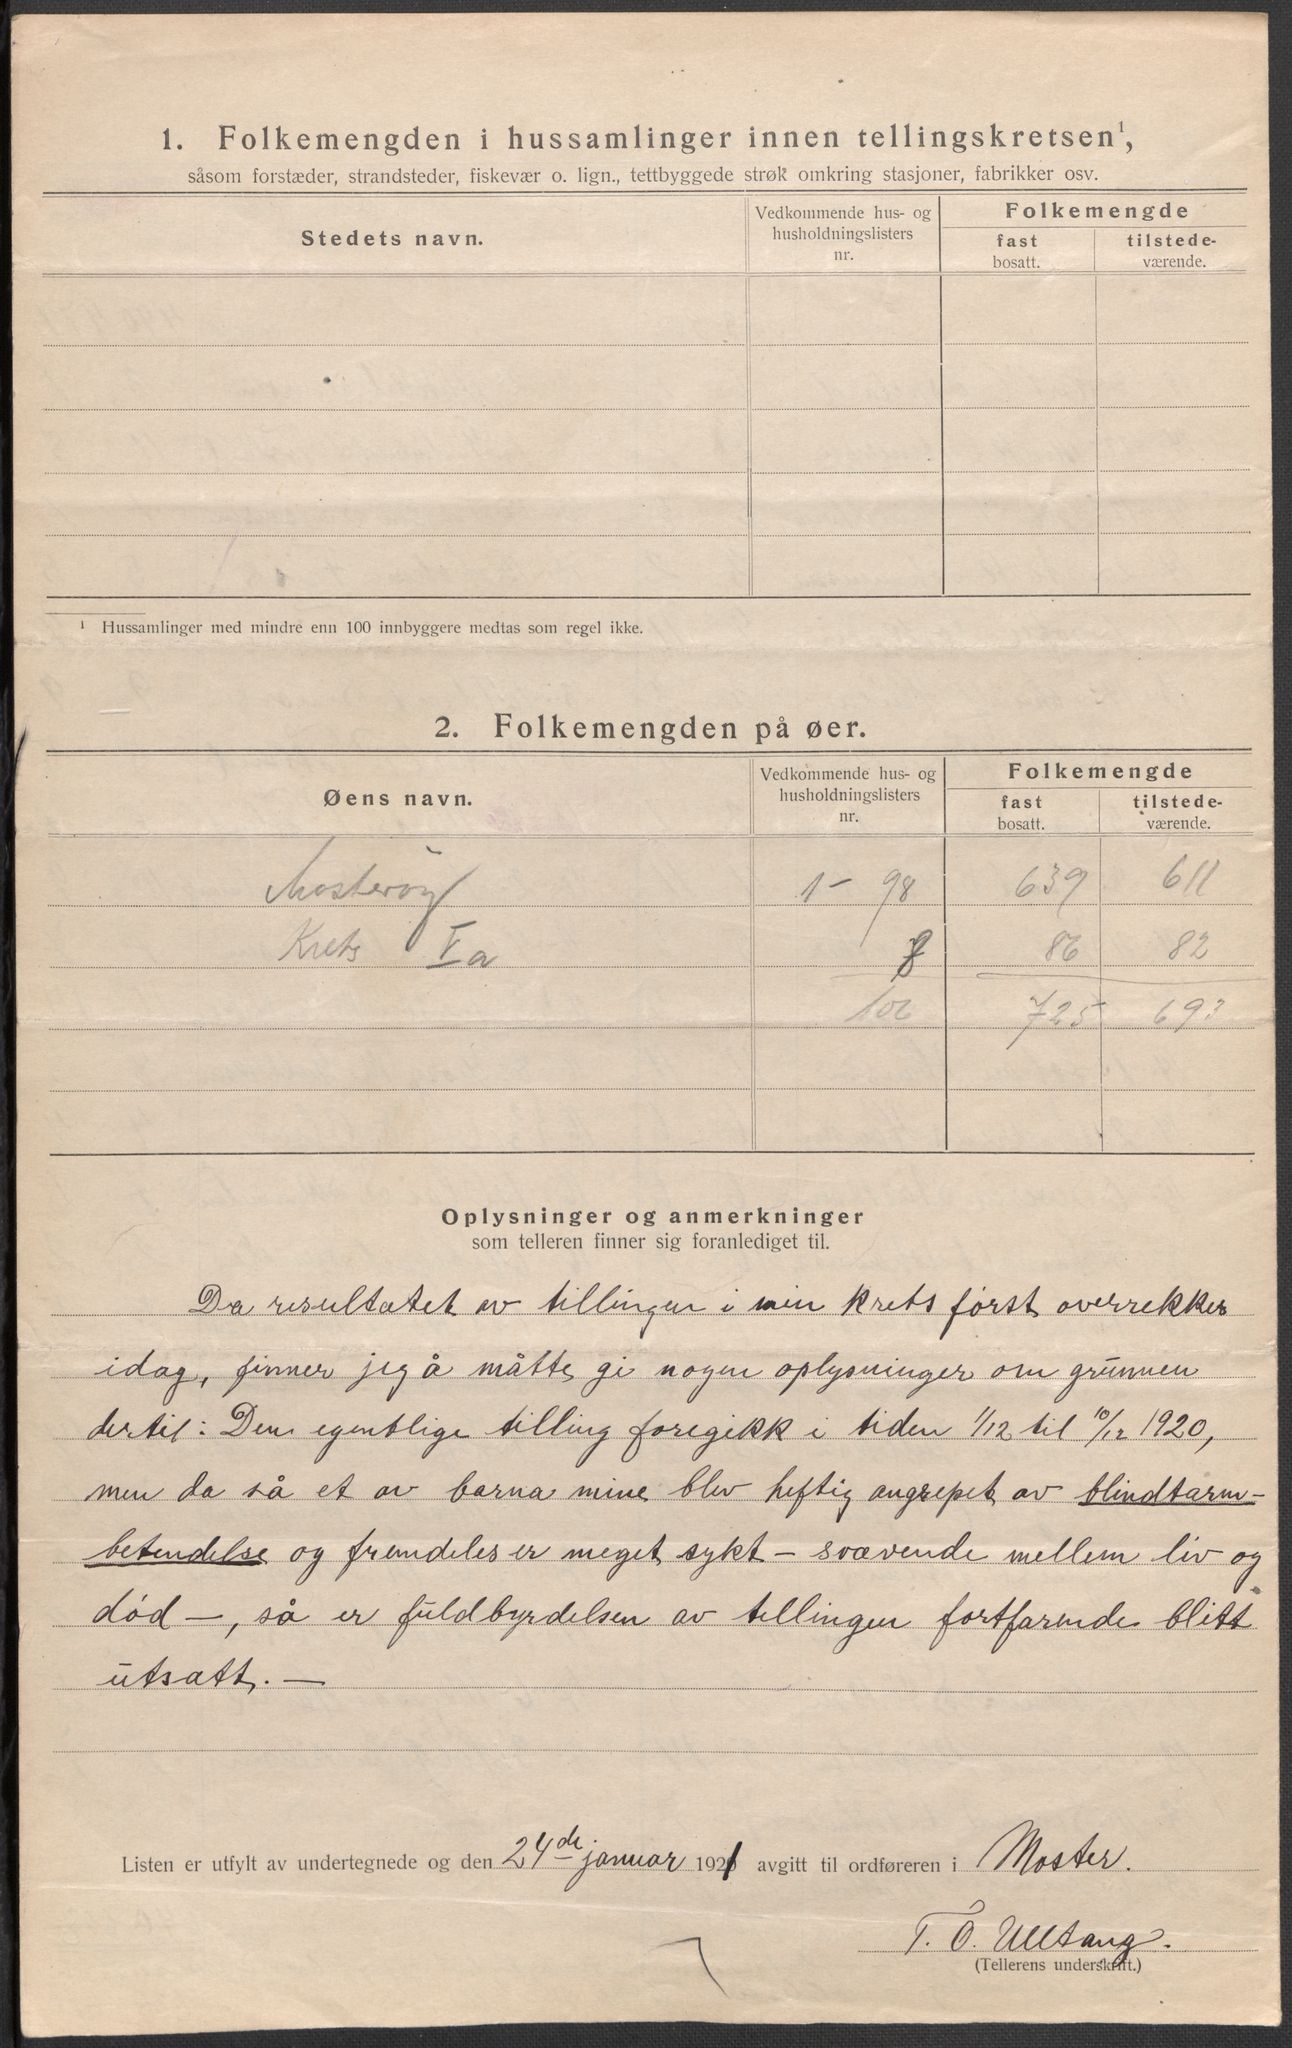 1. Folkemengden i hussamlinger innen tellingskretsen¹,
såsom forstæder, strandsteder, fiskevær o. lign., tettbyggede strøk omkring stasjoner, fabrikker osv.
Stedets navn.
Vedkommende hus- og husholdningslisters nr.
Folkemengde
fast bosatt.
tilstede-værende.
¹ Hussamlinger med mindre enn 100 innbyggere medtas som regel ikke.
2. Folkemengden på øer.
Øens navn.
Vedkommende hus- og husholdningslisters nr.
Folkemengde
fast bosatt.
tilstede-værende.
Mosterøy 1 - 98 639 611
Krets Va 8 86 82
106 725 693
Oplysninger og anmerkninger
som telleren finner sig foranlediget til.
Da resultatet av tellingen i min krets først overrekkes
idag, finner jeg å måtte gi nogen oplysninger om grunnen
dertil: Den egentlige telling foregikk i tiden 1/12 til 10/12 1920,
men da så et av barna mine blev heftig angrepet av blindtarm-
betendelse og fremdeles er meget sykt – svævende mellem liv og
død –, så er fuldbyrdelsen av tellingen fortfarende blitt
utsatt. –
Listen er utfylt av undertegnede og den 24de januar 1921 avgitt til ordføreren i Moster.
T. O. Ulltang.
(Tellerens underskrift.)